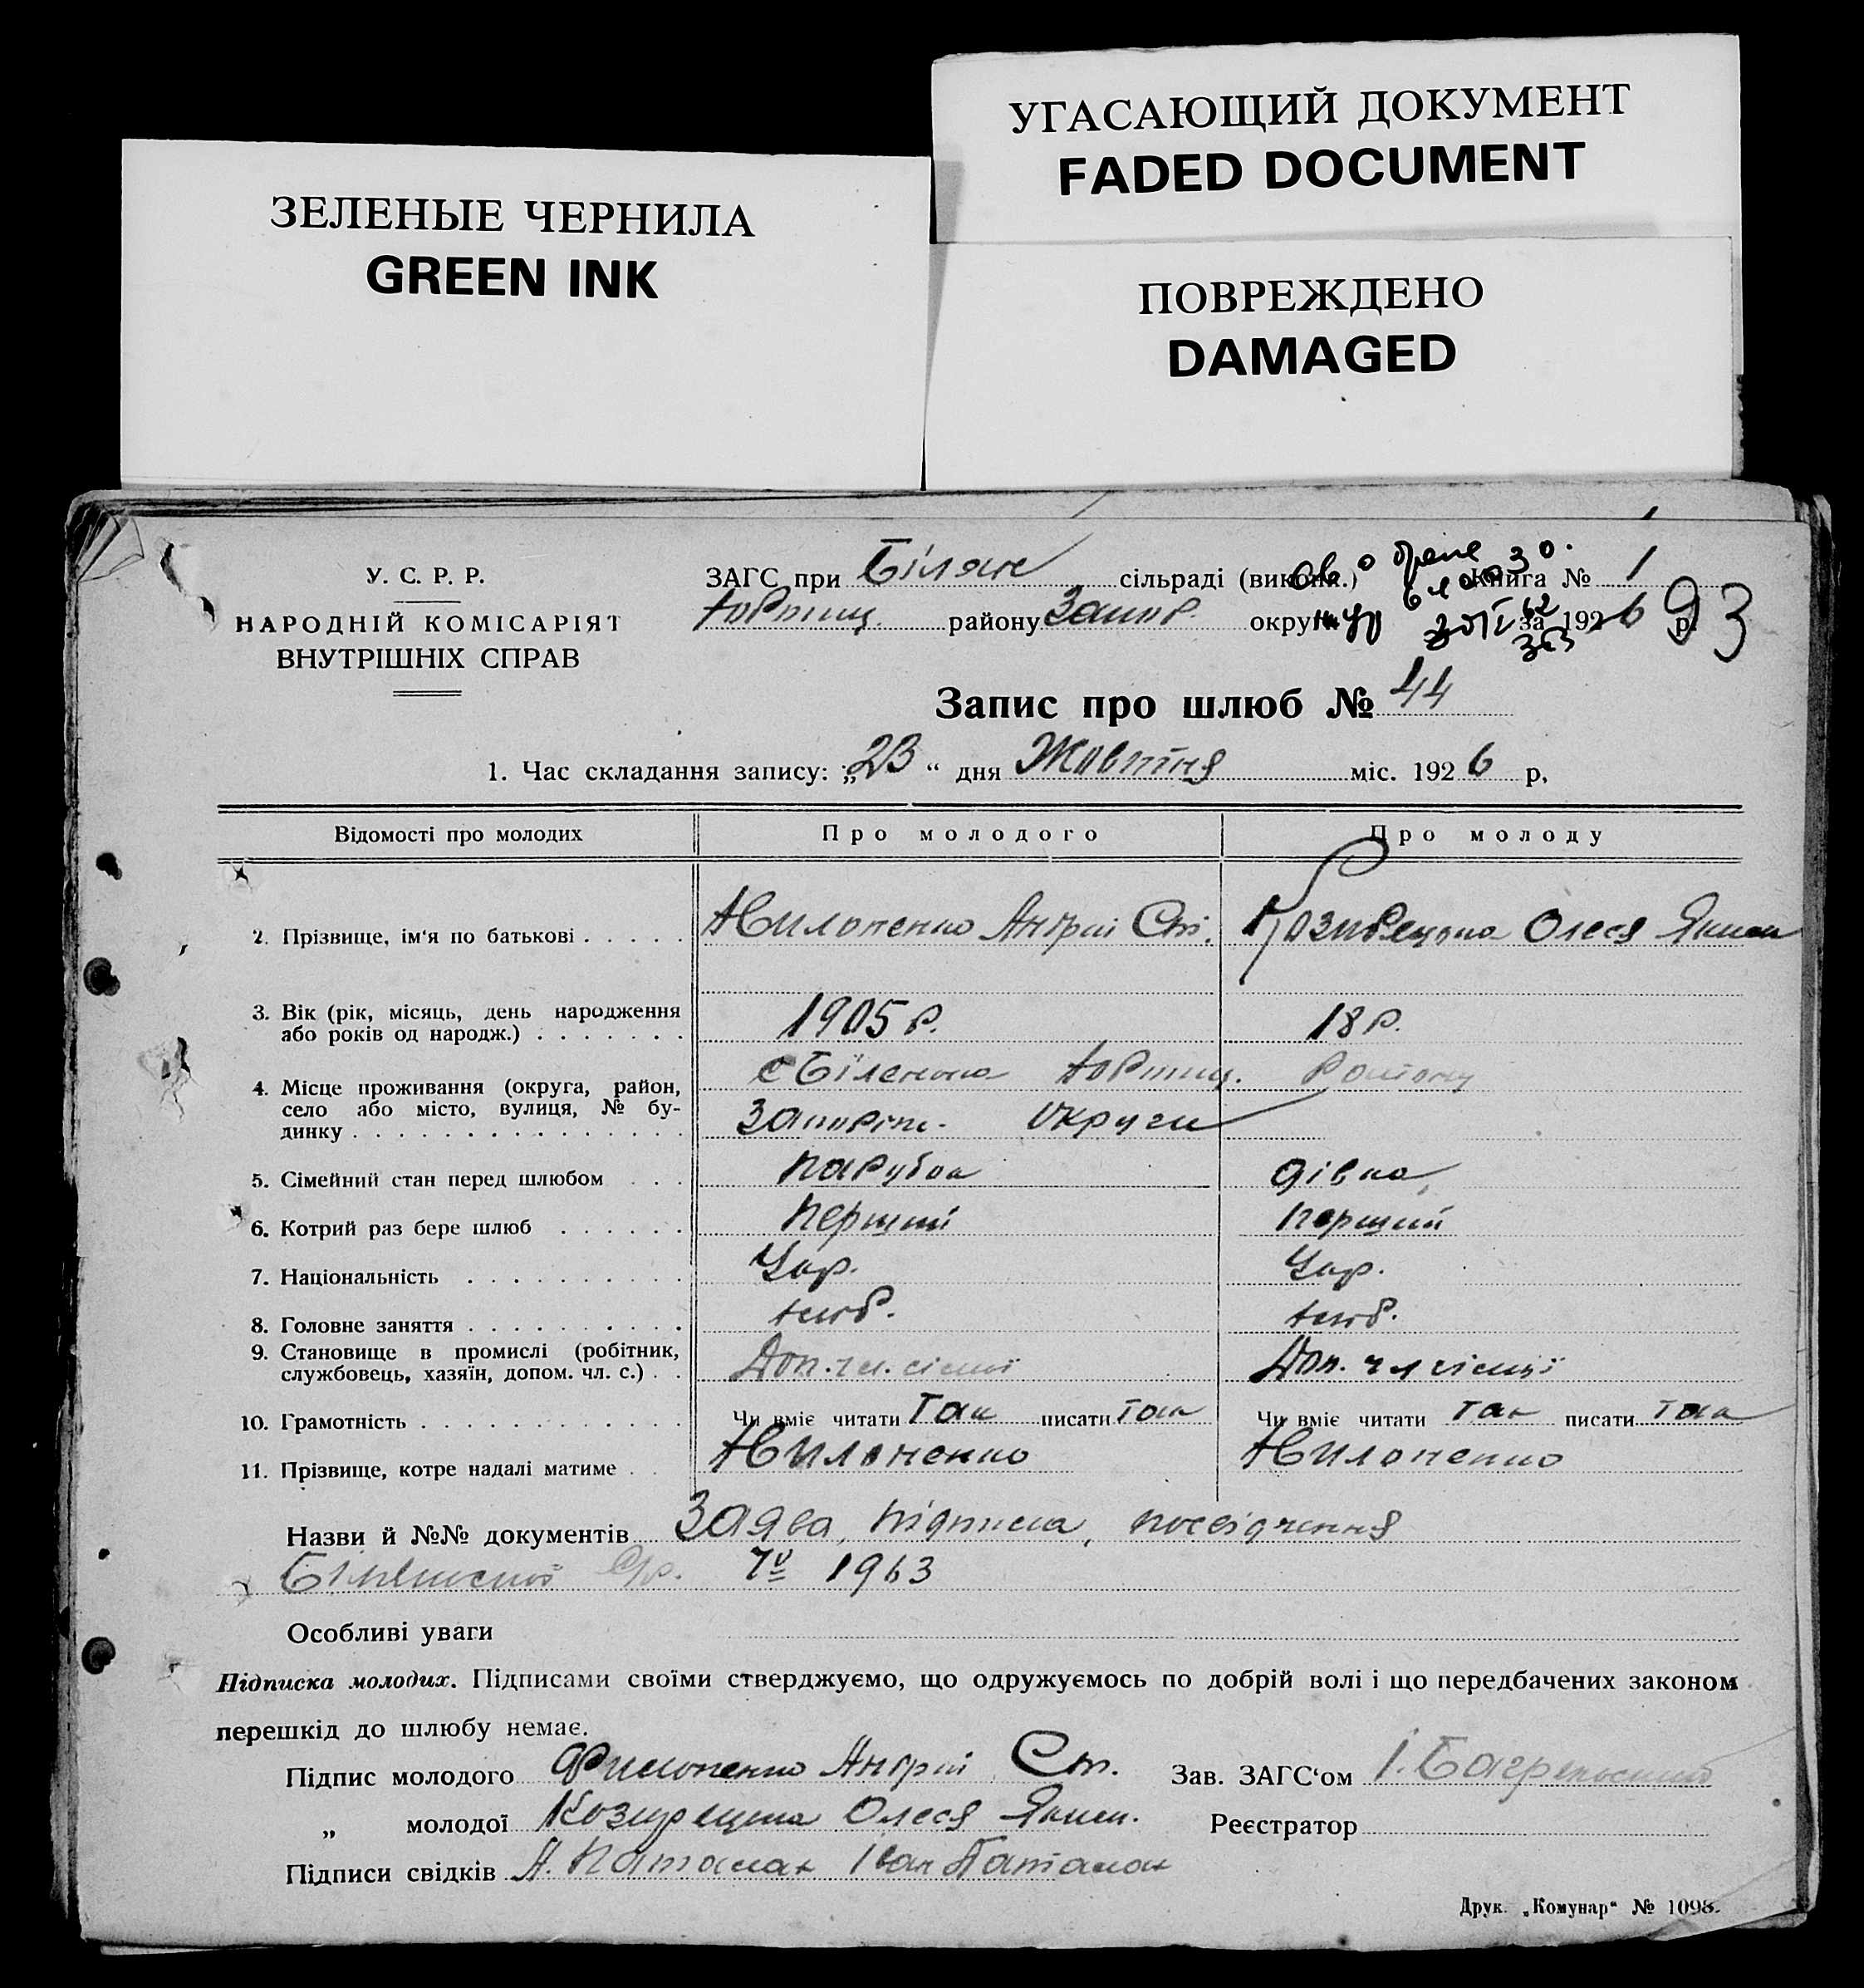 УГАСАЮЩИЙ ДОКУМЕНТ
FADED DOCUMENT
ЗЕЛЕНЫЕ ЧЕРНИЛА
GREEN INK
ПОВРЕЖДЕНО
DAMAGED
У. С. Р. Р.
НАРОДНІЙ КОМІСАРІЯТ
ВНУТРІШНІХ СПРАВ
ЗАГС при Біленк сільраді (викон.) Книга № 1
району Запор. округи за 1926 р. 93
Запис про шлюб № 44
1. Час складання запису: „23“ дня Жовтня міс. 1926 р.
Відомості про молодих Про молодого Про молоду
2. Прізвище, ім'я по батькові Филоненко Андрій Ст. Олеся Яким
3. Вік (рік, місяць, день народження 1905 р. 18 р.
або років од народж.)
4. Місце проживання (округа, район, с Біленька
село або місто, вулиця, № бу- Запоріж. Округи
динку
5. Сімейний стан перед шлюбом парубок дівка
6. Котрий раз бере шлюб перший перший
7. Національність Укр. Укр.
8. Головне заняття хліб. хліб.
9. Становище в промислі (робітник, Доп. чл. сімї Доп. чл сімї
службовець, хазяїн, допом. чл. с.)
10. Грамотність Чи вміє читати Так писати так Чи вміє читати так писати так
11. Прізвище, котре надалі матиме Филоненко Филоненко
Назви й №№ документів Заява, підписка, посвідчення
Біленської с/р. 1963
Особливі уваги
Підписка молодих. Підписами своїми стверджуємо, що одружуємось по добрій волі і що передбачених законом
перешкід до шлюбу немає.
Підпис молодого Филоненко Андрій Ст. Зав. ЗАГС'ом І.
„ молодої Олеся Яким. Реєстратор
Підписи свідків А. Паталак Іван Паталак
Друк. „Комунар“ № 1098.